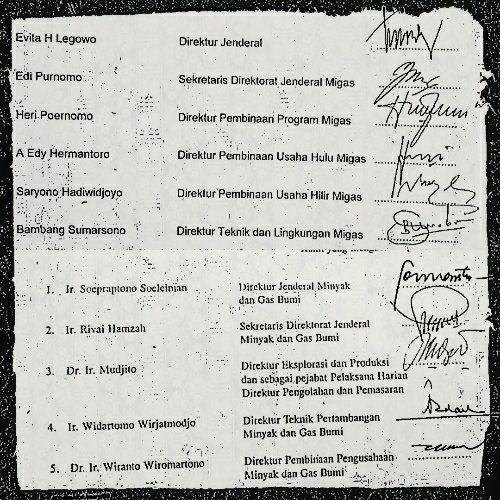 Evita H Legowo Direktur Jenderal
Edi Purnomo Sekretaris Direktorat Jenderal Migas
Heri Poernomo Direktur Pembinaan Program Migas
A Edy Hermantoro Direktur Pembinaan Usaha Hulu Migas
Saryono Hadiwidjoyo Direktur Pembinaan Usaha Hilir Migas
Bambang Sumarsono Direktur Teknik dan Lingkungan Migas
1. Ir. Soepraptono Soeleiman Direktur Jenderal Minyak
dan Gas Bumi
2. Ir. Rivai Hamzah Sekretaris Direktorat Jenderal
Minyak dan Gas Bumi
3. Dr. Ir. Mudjito Direktur Eksplorasi dan Produksi
dan sebagai pejabat Pelaksana Harian
Direktur Pengolahan dan Pemasaran
4. Ir. Widartomo Wirjatmodjo Direktur Teknik Pertambangan
Minyak dan Gas Bumi
5. Dr. Ir. Wiranto Wiromartono Direktur Pembinaan Pengusahaan
Minyak dan Gas Bumi